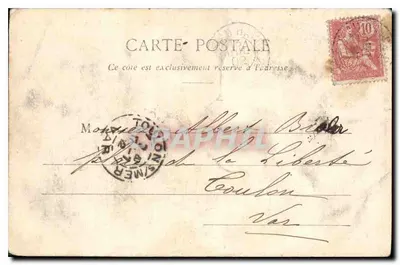 CARTE POSTALE
Ce côté est exclusivement réservé à l'adresse
10
Monsieur Albert
de la Liberté
Toulon
Var
TOULON S/MER
VAR